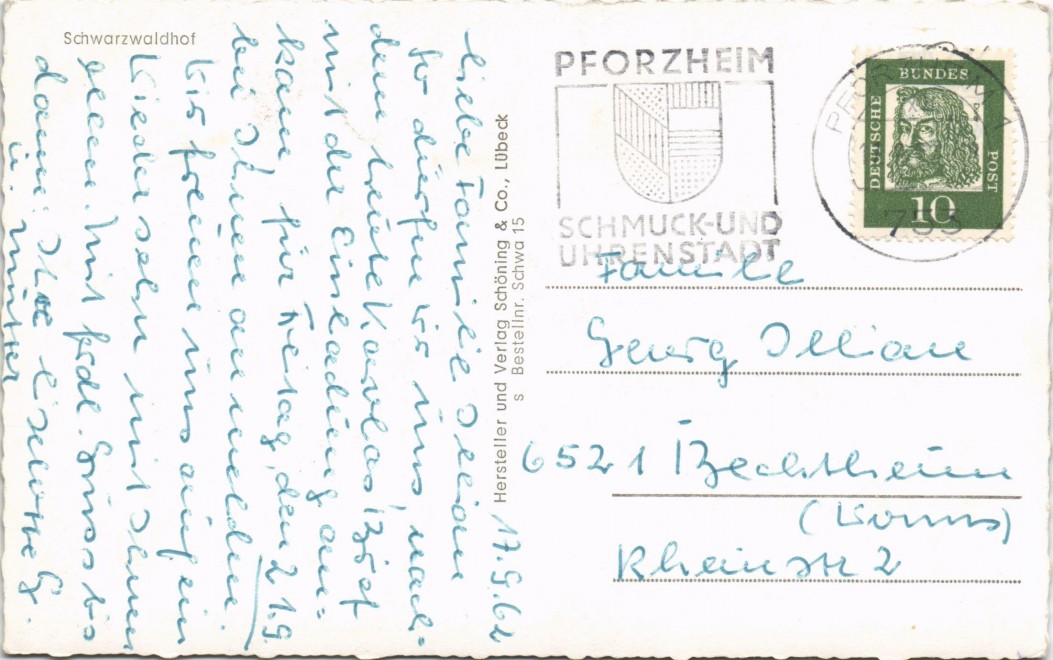 Schwarzwaldhof
17.9.62
Liebe Familie Illian
so dürfen wir uns, nach-
dem heute Karolas Brief
mit der Einladung an-
kam, für Freitag, den 21.9.
bei Ihnen anmelden.
Wir freuen uns auf ein
Wiedersehen mit Ihnen
allen. Mit frdl. Gruss bis
dann: Ihre Liselotte G.
u. Mutter
Hersteller und Verlag Schöning & Co., Lübeck
s Bestellnr. Schwa 15
PFORZHEIM
SCHMUCK-UND
UHRENSTADT
PFORZHEIM 1
753
DEUTSCHE
BUNDES
POST
10
Familie
Georg Illian
6521 Bechtheim
(Worms)
Rheinstr 2